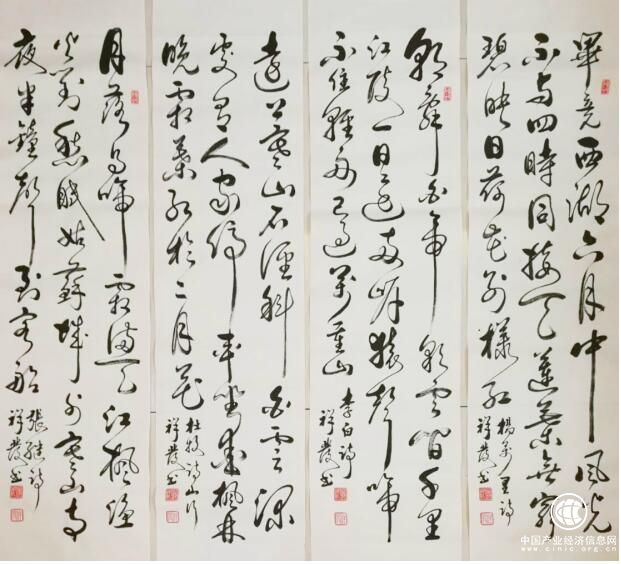 畢竟西湖六月中風光
不与四時同接天蓮葉無窮
碧映日荷花別樣紅
楊萬里詩
祥發书
朝辞白帝彩雲間千里
江陵一日還兩岸猿聲啼
不住輕舟已過萬重山
李白詩
祥發书
遠上寒山石徑斜白雲深
處有人家停車坐愛楓林
晚霜葉紅於二月花
杜牧詩山行
祥發书
月落烏啼霜滿天江楓漁
火對愁眠姑蘇城外寒山寺
夜半鐘聲到客船
張繼詩
祥發书
中国产业经济信息网
www.cinic.org.cn